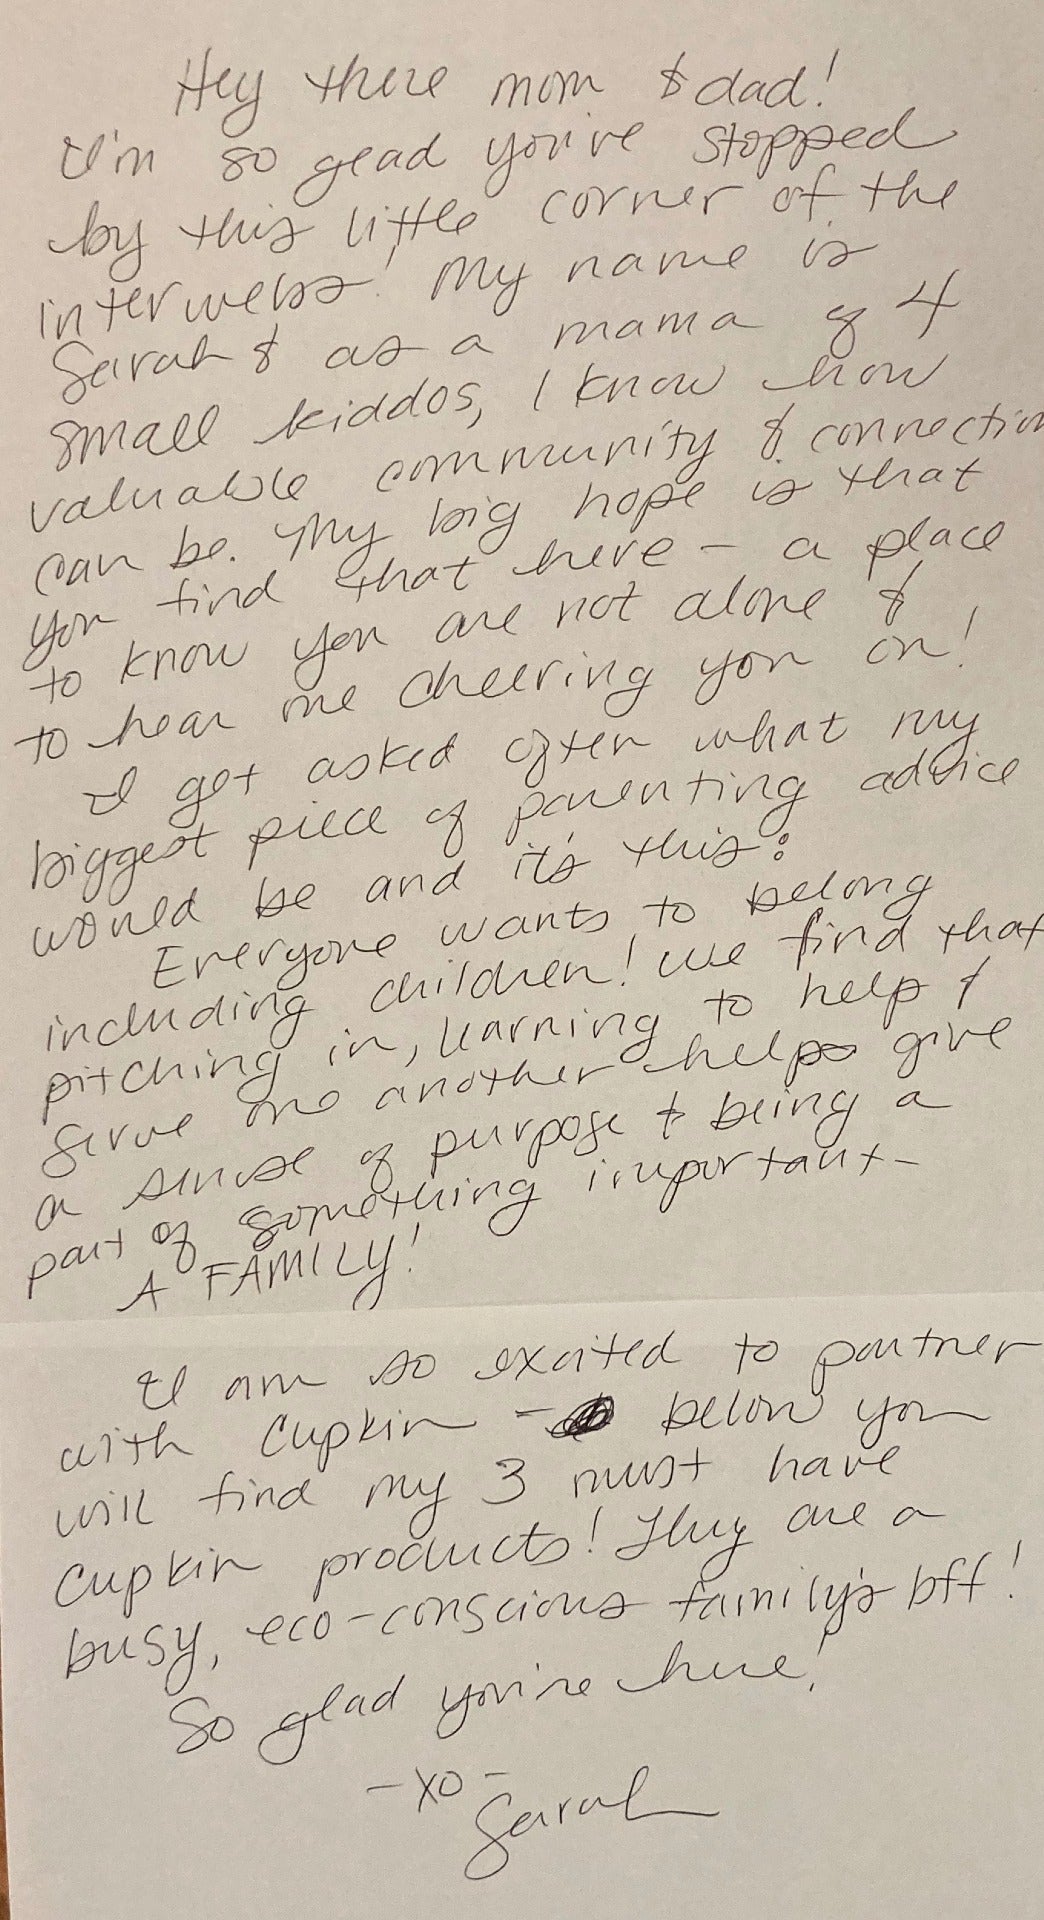 Hey there mom & dad!
I'm so glad you've stopped
by this little corner of the
interwebs! My name is
Sarah & as a mama of 4
small kiddos, I know how
valuable community & connection
can be. My big hope is that
you find that here - a place
to know you are not alone &
to hear me cheering you on!
I get asked often what my
biggest piece of parenting advice
would be and it's this:
Everyone wants to belong
including children! We find that
pitching in, learning to help &
serve one another helps give
a sense of purpose & being a
part of something important-
A FAMILY!
I am so excited to partner
with Cupkin - below you
will find my 3 must have
Cupkin products! They are a
busy, eco-conscious family's bff!
So glad you're here!
-XO-
Sarah